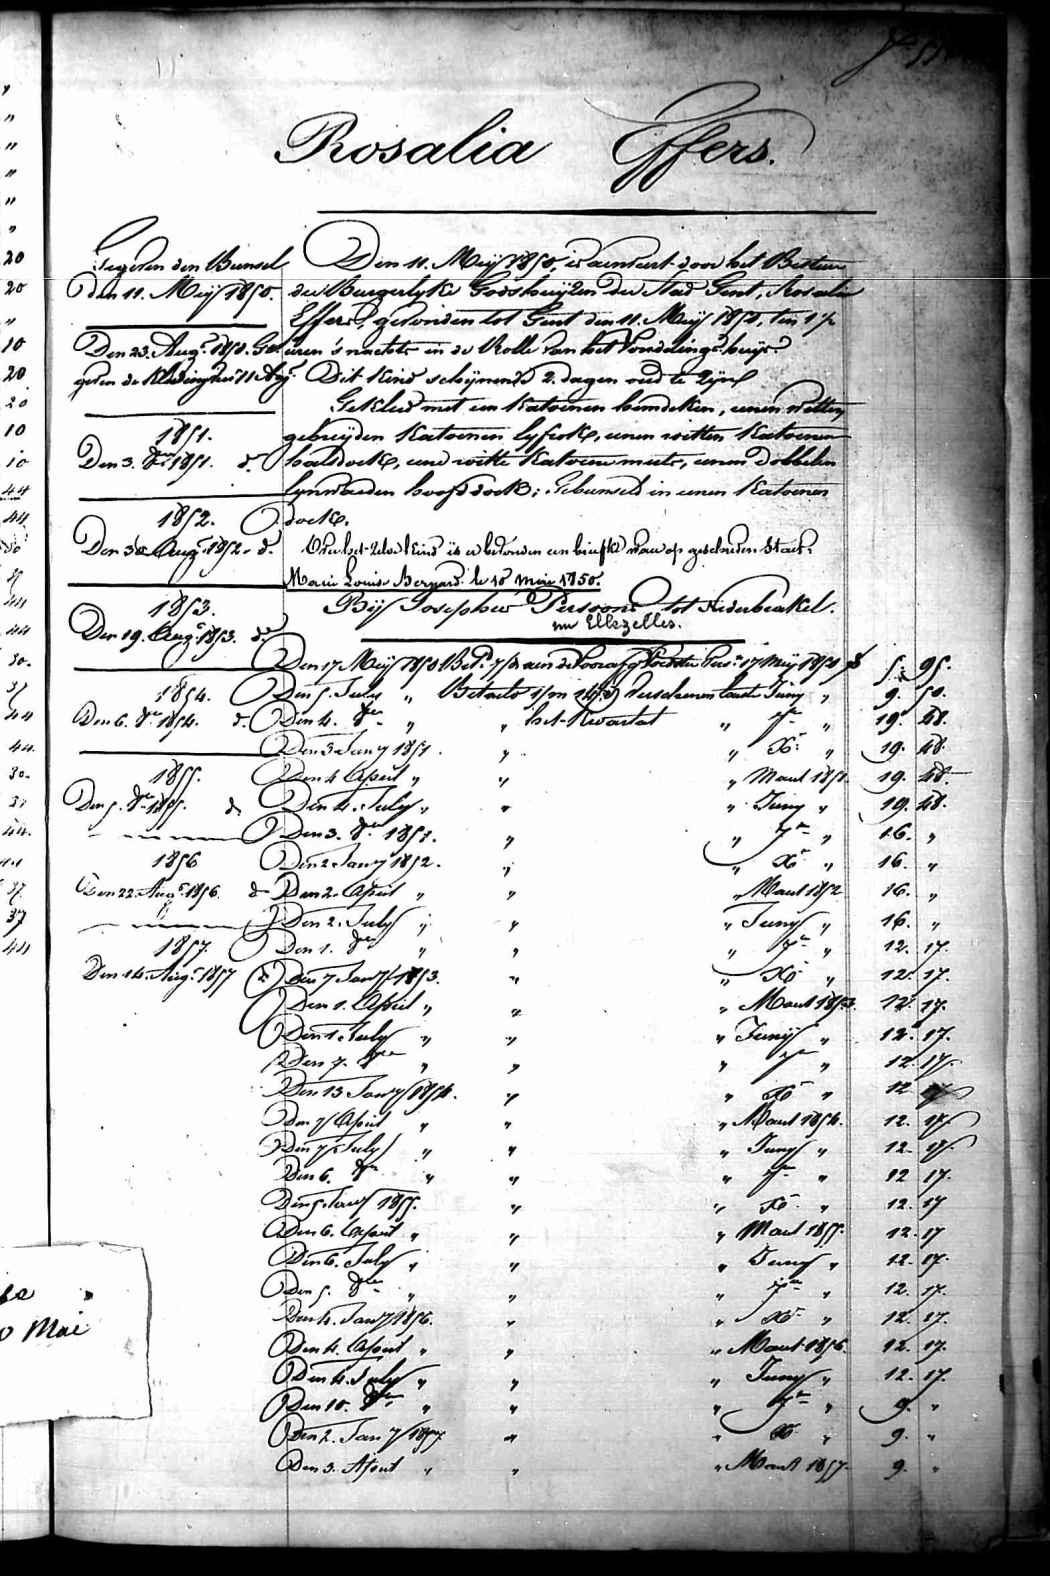 Rosalia Effers.
Gegeven den Bunsel
den 11. Meij 1850.
Den 23. Augt. 1850. Ge-
geven de Kleedinghen
1851.
Den 3. 8bre 1851. do
1852.
Den 30 Augt. 1852. do
1853.
Den 19. Augt. 1853. do
1854.
Den 6. 8bre 1854. do
1855.
Den 5. 8bre 1855. do
1856
Den 22 Augt. 1856. do
1857.
Den 14. Augt. 1857
Den 11. Meij 1850, is aenveert door het Bestuer
der Burgerlyke Godshuyzen der Stad Gent, Rosalia
Effers, gevonden tot Gent den 11. Meij 1850, ten 1 1/2
uren 's nachts in de Rolle van het Vondelingshuys.
Dit Kind schynende 2. dagen oud te zyn
Gekleed met een Katoenen hemdeken, eenen witten
gebreyden Katoenen lyfrok, eenen witten Katoenen
halsdoek, eene witte Katoene muts, eenen dobbelen
lynwaeden hoofddoek; Gebunseld in eenen Katoenen
doek.
Over het zelve Kind is er bevonden een briefke waer op geschreven Staet.
Marie Louise Bernard le 10 mai 1850.
Bij Josephus Persoons tot Nederbrakel.
nu Ellezelles.
Den 17 Meij 1850 Bet. aen de 17 Meij 1850 5. 95.
Den 5. July " Betaelt verschenen laest Juny " 9. 50.
Den 4. 8bre " " het Kwartael " 7bre " 19. 48.
Den 3 Jany 1851. " " Xbr " 19. 48.
Den 4 April " " " Maert 1851. 19. 48.
Den 4. July " " " Juny " 19. 48.
Den 3. 8bre 1851. " " 7bre " 16. "
Den 2 Jany 1852. " " Xr " 16. "
Den 2. April " " " Maert 1852 16. "
Den 2. July " " " Juny " 16. "
Den 1. 8bre " " " 7bre " 12. 17.
Den 7 Jany 1853. " " Xbr " 12. 17.
Den 1. April " " " Maert 1853. 12. 17.
Den 1. July " " " Junij " 12. 17.
Den 7. 8bre " " " 7bre " 12. 17.
Den 13 Jany 1854. " " Xbr " 12 17
Den 7 April " " " Maert 1854. 12. 17.
Den 7 July " " " Juny " 12. 17.
Den 6. 8bre " " " 7bre " 12 17.
Den 5. Jany 1855. " " Xbr " 12. 17
Den 6. April " " " Maert 1855. 12. 17
Den 6. July " " " Juny " 12. 17.
Den 5. 8bre " " " 7bre " 12. 17.
Den 4. Jany 1856. " " Xbr " 12. 17.
Den 4. April " " " Maert 1856. 12. 17.
Den 4. July " " " Juny " 12. 17.
Den 10. 8bre " " " 7bre " 9. "
Den 2. Jany 1857. " " Xbr " 9. "
Den 3. April " " " Maert 1857. 9. "
Mai